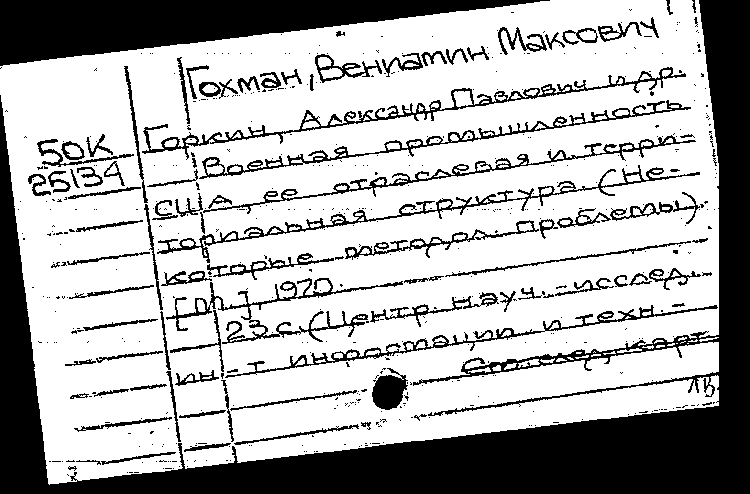 Гохман, Вениамин Максович
Горкин, Александр Павлович и др.
50К
25134
Военная промышленность
США, ее отраслевая и терри=
ториальная структура. (Не-
которые методол. проблемы).
[М.], 1970.
23 с. (Центр. науч.-исслед.
ин-т информации и техн.-
См. след. карт.